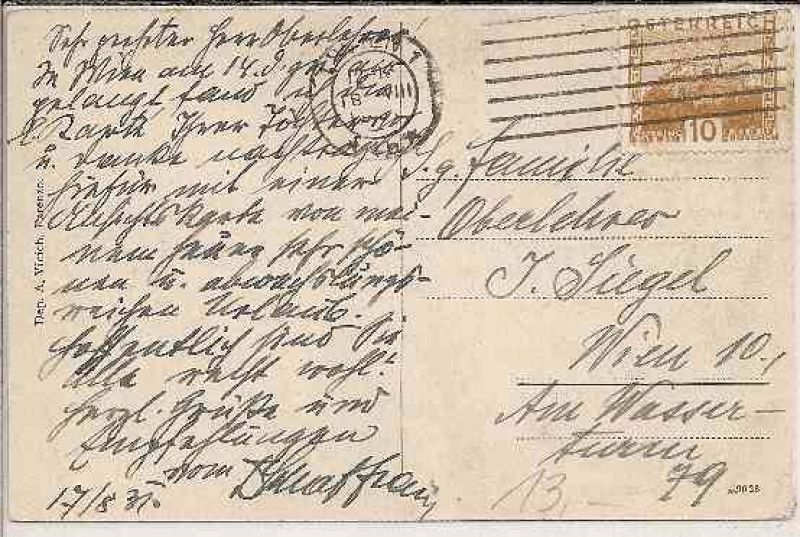 Sehr geehrter Herr Oberlehrer
In Wien am 14.d
gelangt fand
Karte Ihrer
u. danke
hiefür mit einer
Ansichtskarte von mei-
nem heurg. sehr schö-
nen u. abwechslungs-
reichen Urlaub.
Hoffentlich sind Sie
alle recht wohl!
Herzl. Grüße und
Empfehlungen
vom
17/8 31.
Dep. A. Parenzo
ÖSTERREICH
10
S. g. Familie
Oberlehrer
J. Siegel
Wien 10.,
Am Wasser-
turm
79
13,-